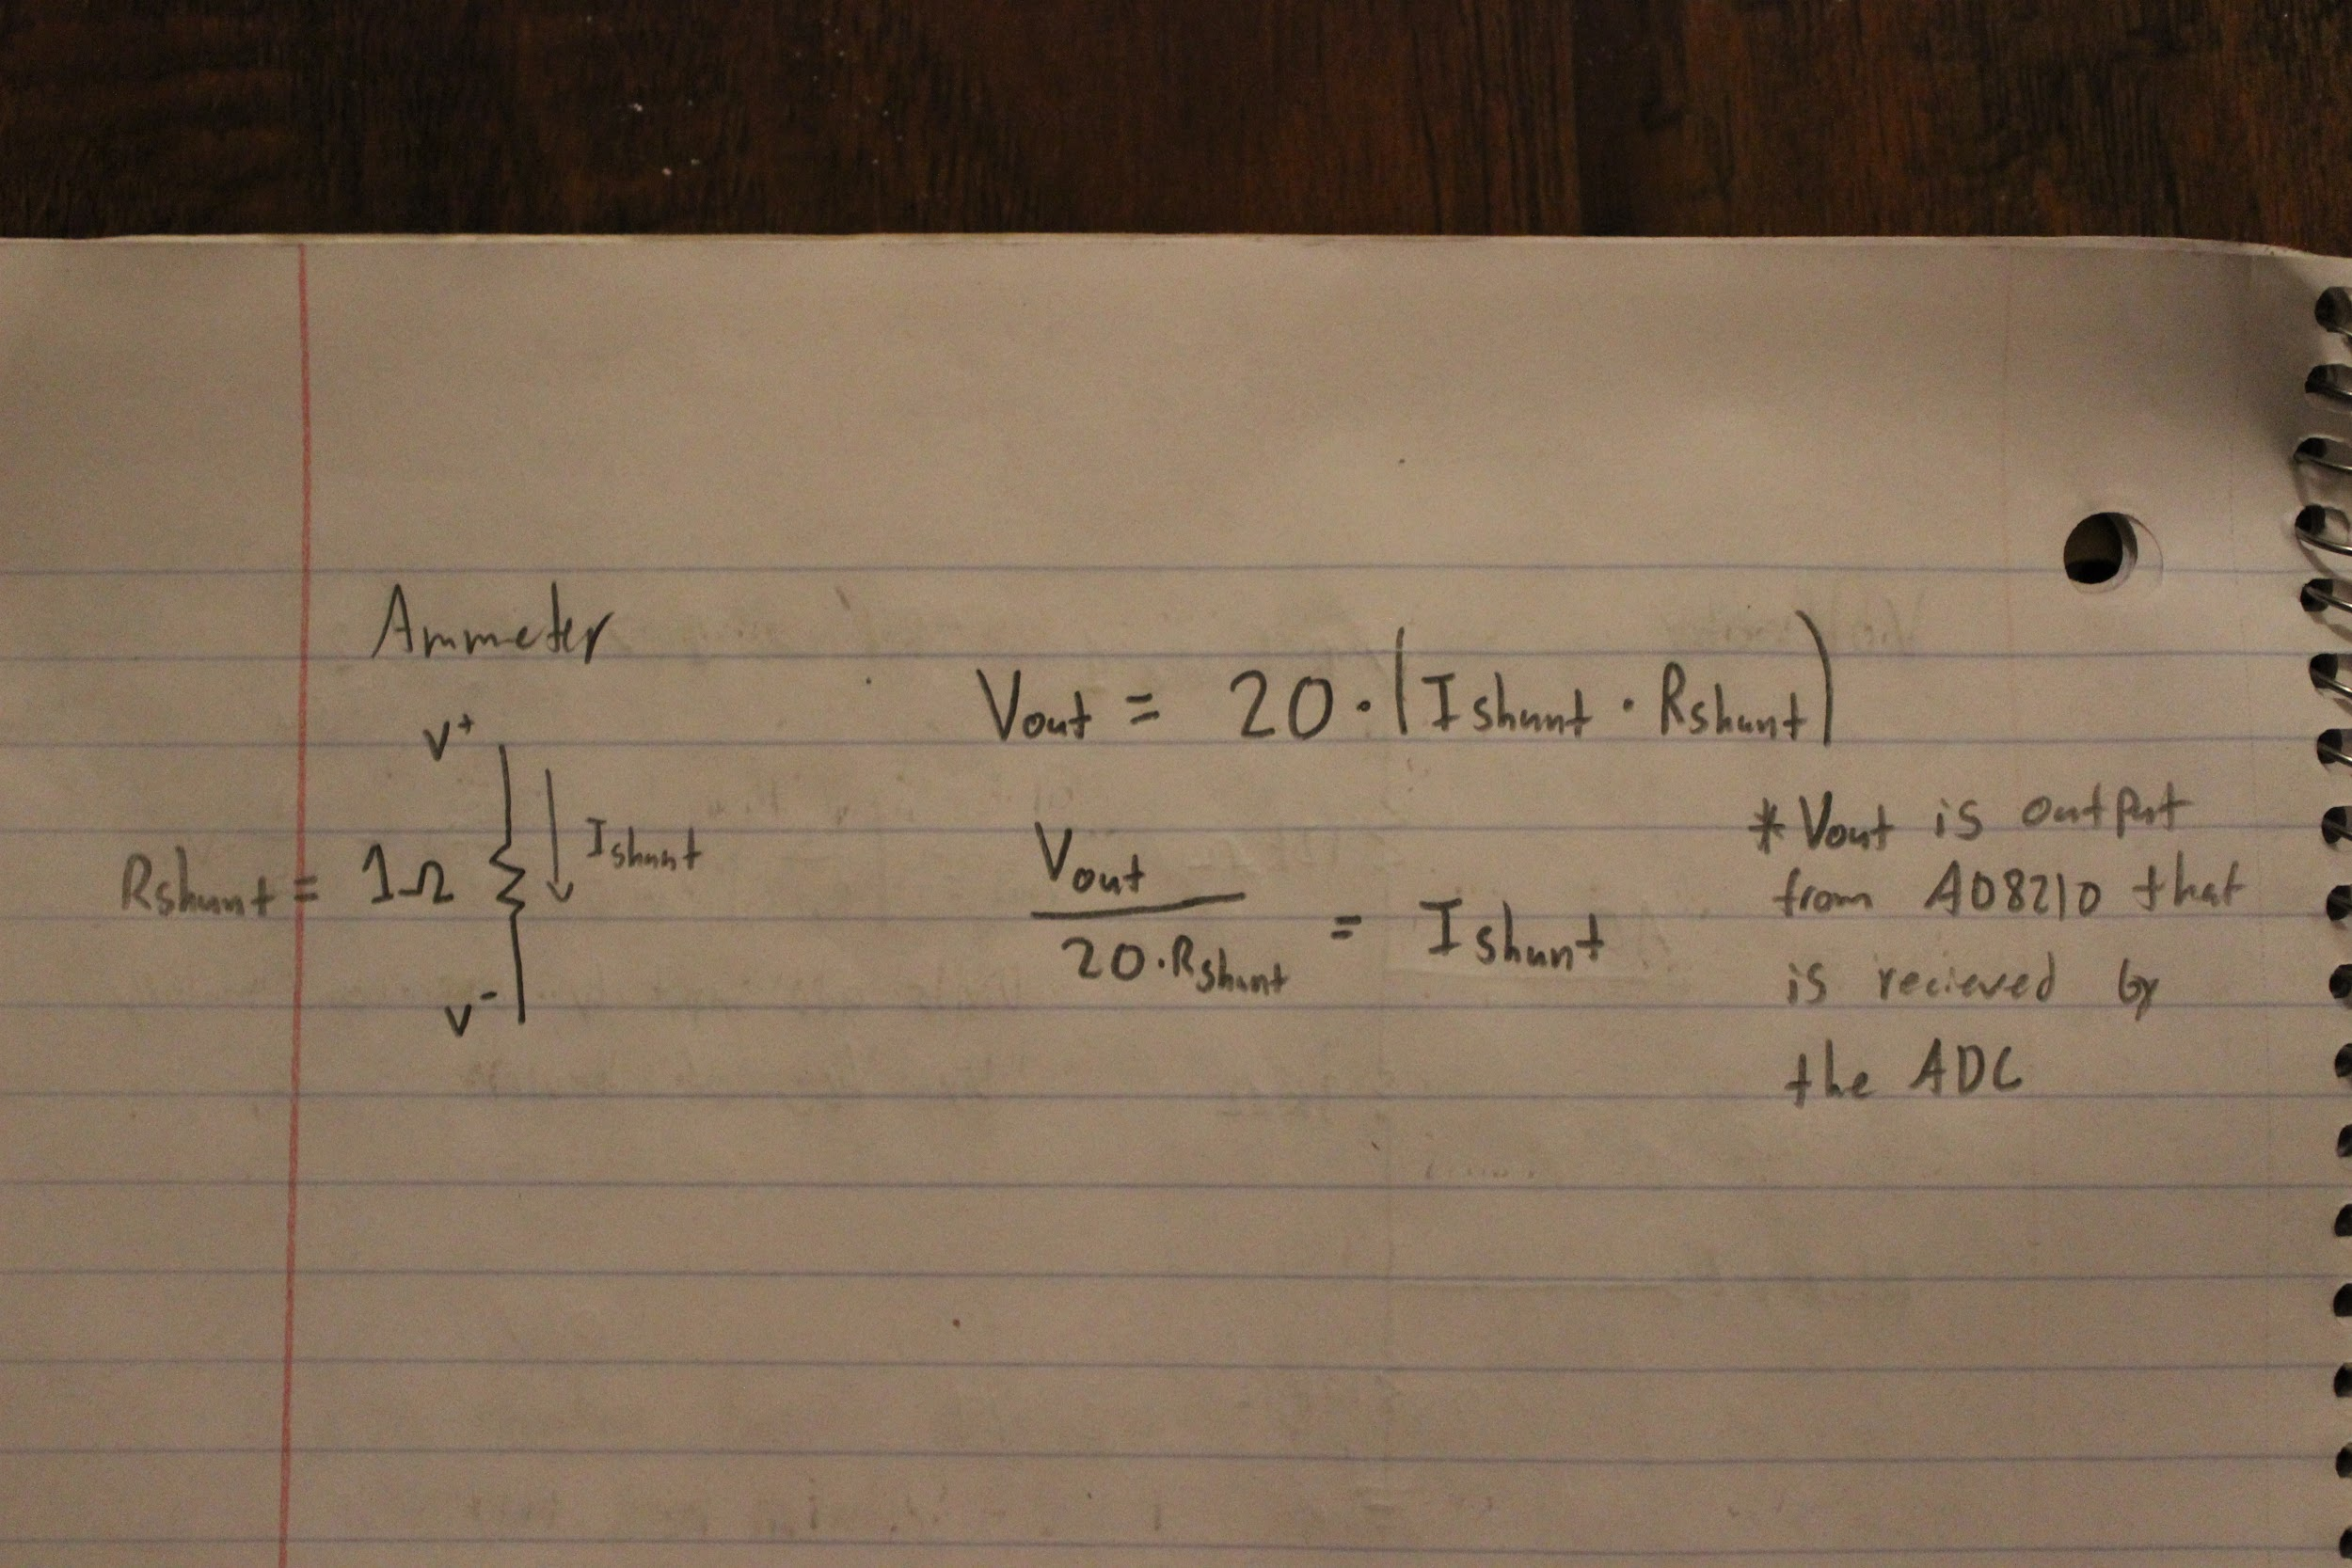 Ammeter
Vout = 20 · (Ishunt · Rshunt)
V+
Ishunt
Rshunt = 1Ω
V-
Vout
20 · Rshunt
= Ishunt
* Vout is output
from AD8210 that
is recieved by
the ADC